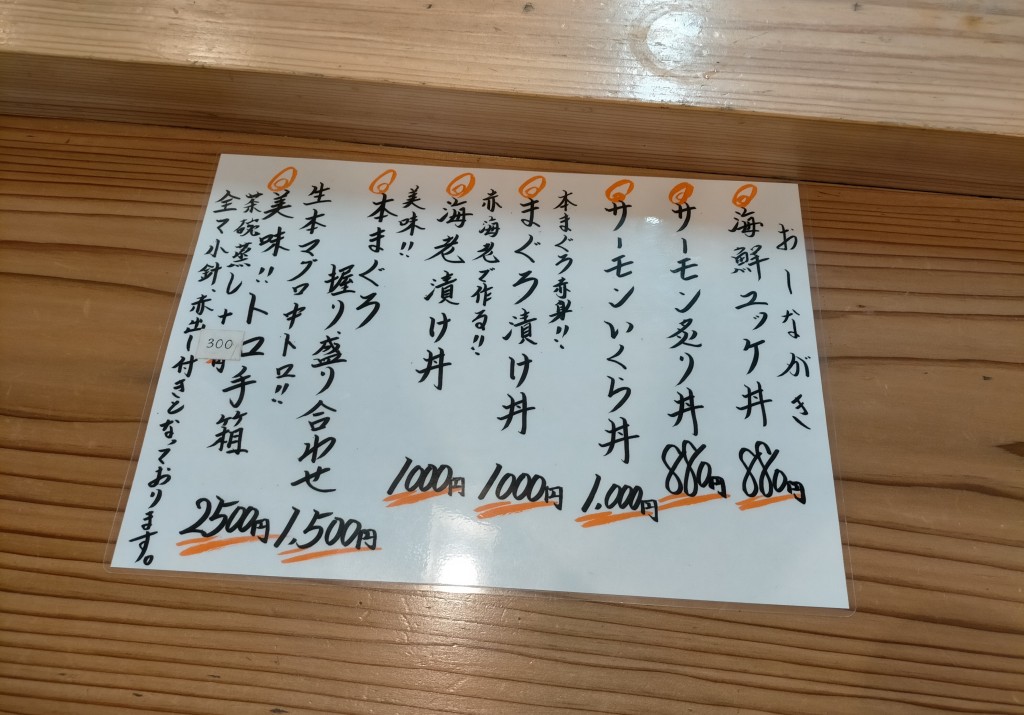 おしながき
海鮮ユッケ丼 880円
サーモン炙り丼 880円
サーモンいくら丼 1.000円
本まぐろ赤身!!
まぐろ漬け丼 1000円
赤海老で作る!!
海老漬け丼 1000円
美味!!
本まぐろ
握り盛り合わせ 1.500円
生本マグロ中トロ!!
美味!!トロ手箱 2500円
茶碗蒸し +300円
全て小針、赤出し付きとなっております。